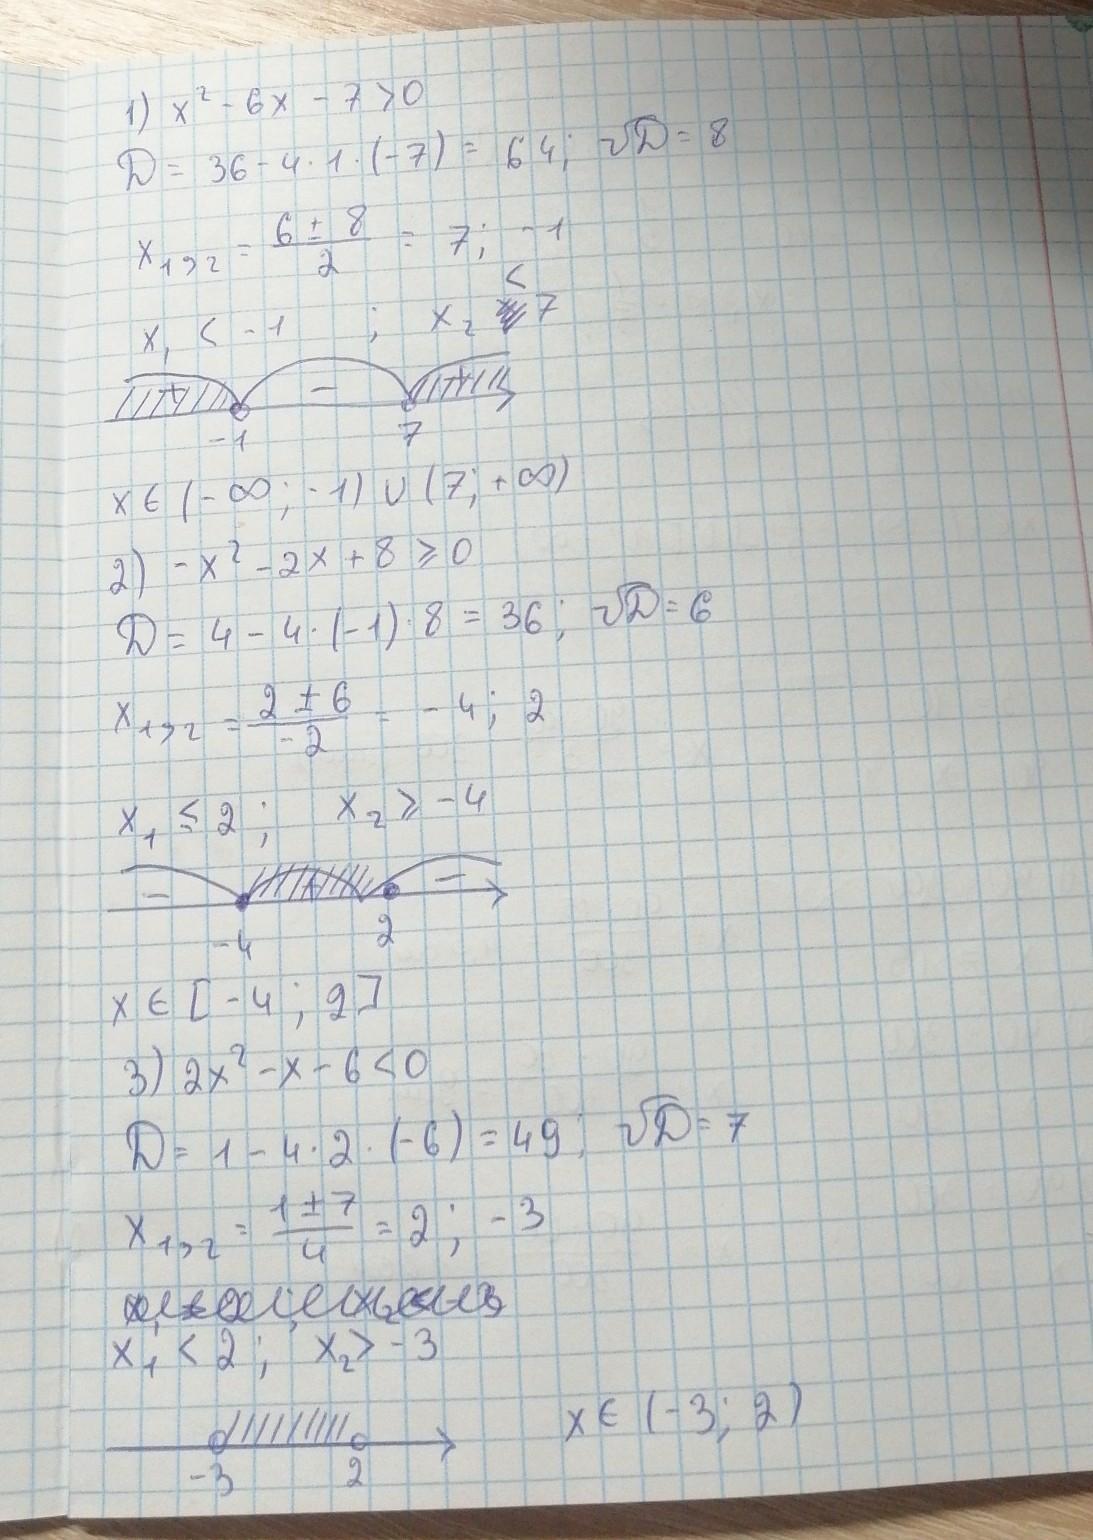 1) x² - 6x - 7 > 0
D = 36 - 4 · 1 · (-7) = 64; √D = 8
x₁,₂ = (6 ± 8)/2 = 7; -1
x₁ < -1 ; x₂ < 7
+ - +
-1 7
x ∈ (-∞; -1) ∪ (7; +∞)
2) -x² - 2x + 8 ≥ 0
D = 4 - 4 · (-1) · 8 = 36; √D = 6
x₁,₂ = (2 ± 6)/-2 = -4; 2
x₁ ≤ 2; x₂ ≥ -4
- + -
-4 2
x ∈ [-4; 2]
3) 2x² - x - 6 < 0
D = 1 - 4 · 2 · (-6) = 49; √D = 7
x₁,₂ = (1 ± 7)/4 = 2; -3
x₁ < 2; x₂ > -3
-3 2
x ∈ (-3; 2)